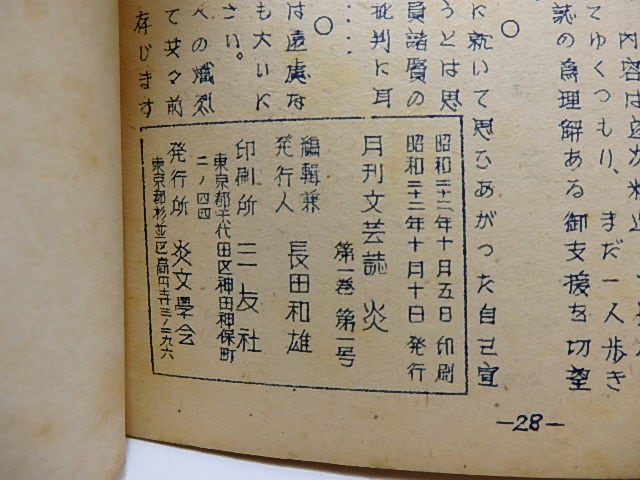 内容は逐次
てゆくつもり、まだ一人歩き
誌の為理解ある御支援を切望
○
に就いて思ひあがった自己宣
うとは思
員諸賢の
批判に耳
……
○
は遠慮な
も大いに
さい。
への熾烈
て益々前
存じます
昭和二十二年十月五日印刷
昭和二十二年十月十日発行
月刊文芸誌 炎
第一巻 第一号
編輯兼
発行人 長田和雄
印刷所 三友社
東京都千代田区神田神保町
二ノ四四
発行所 炎文學会
東京都杉並区高円寺三ノ二九六
—28—